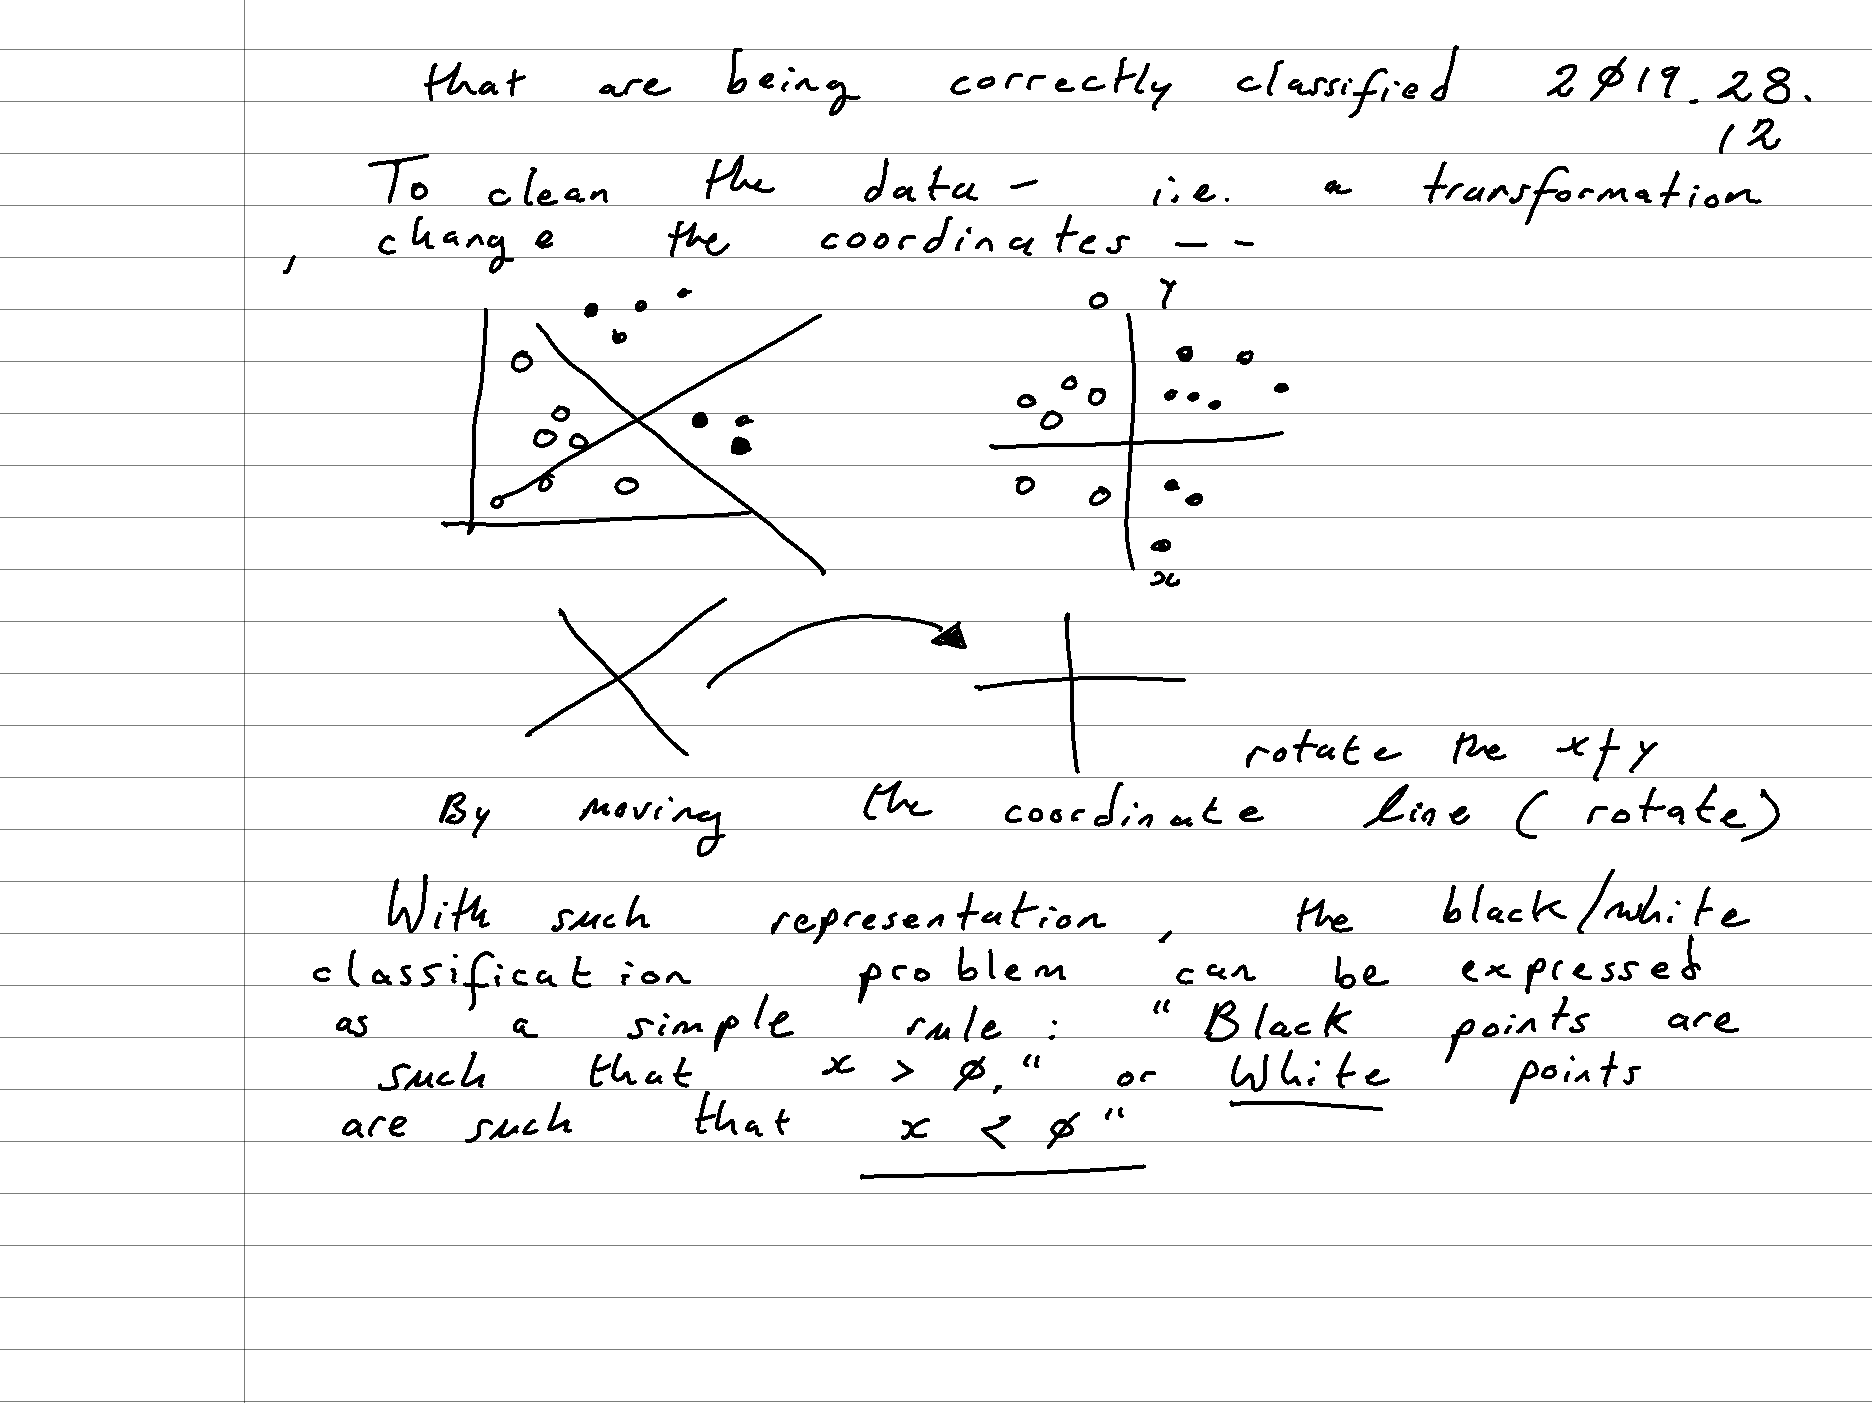 that are being correctly classified 2Ø19.28.
12
To clean the data - i.e. a transformation
, change the coordinates --
Y
x
rotate the x + y
By moving the coordinate line (rotate)
With such representation, the black/white
classification problem can be expressed
as a simple rule: "Black points are
such that x > Ø," or White points
are such that x < Ø"